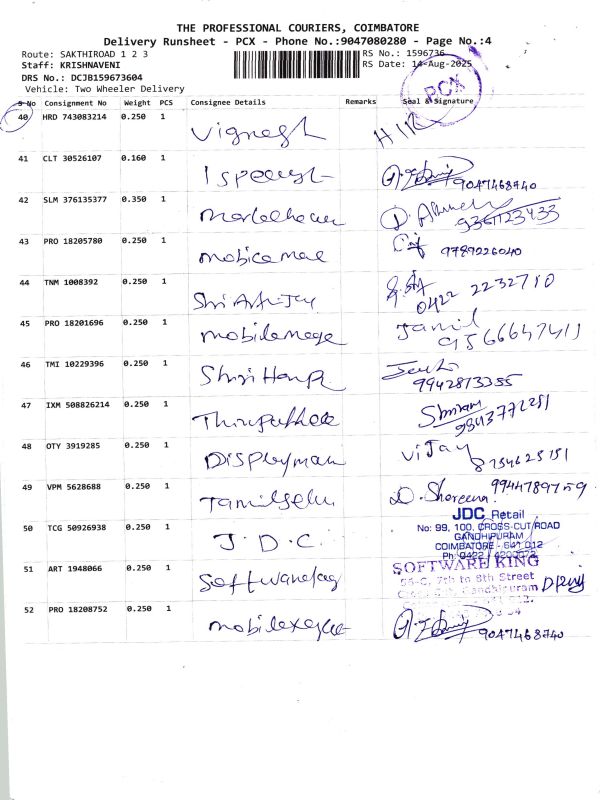 THE PROFESSIONAL COURIERS, COIMBATORE
Delivery Runsheet - PCX - Phone No.:9047080280 - Page No.:4
Route: SAKTHIROAD 1 2 3 RS No.: 1596736
Staff: KRISHNAVENI RS Date: 14-Aug-2025
DRS No.: DCJB159673604
Vehicle: Two Wheeler Delivery
PCX
S No Consignment No Weight PCS Consignee Details Remarks Seal & Signature
40 HRD 743083214 0.250 1 Vignesh
41 CLT 30526107 0.160 1 9047468740
42 SLM 376135377 0.350 1 9361123433
43 PRO 18205780 0.250 1 9789226040
44 TNM 1008392 0.250 1 0422 2232710
45 PRO 18201696 0.250 1 Jamil
9566647411
46 TMI 10229396 0.250 1 9942813355
47 IXM 508826214 0.250 1 9843772251
48 OTY 3919285 0.250 1 Displayman Vijay
8754625151
49 VPM 5628688 0.250 1 Tamilselvi D. Shereena 9944789759
50 TCG 50926938 0.250 1 J.D.C
JDC Retail
No: 99, 100, CROSS-CUT ROAD
GANDHIPURAM
COIMBATORE - 641 012
Ph: 0422 4200072
51 ART 1948066 0.250 1
SOFTWARE KING
56-C, 7th to 8th Street
Gandhipuram
52 PRO 18208752 0.250 1 9047468740